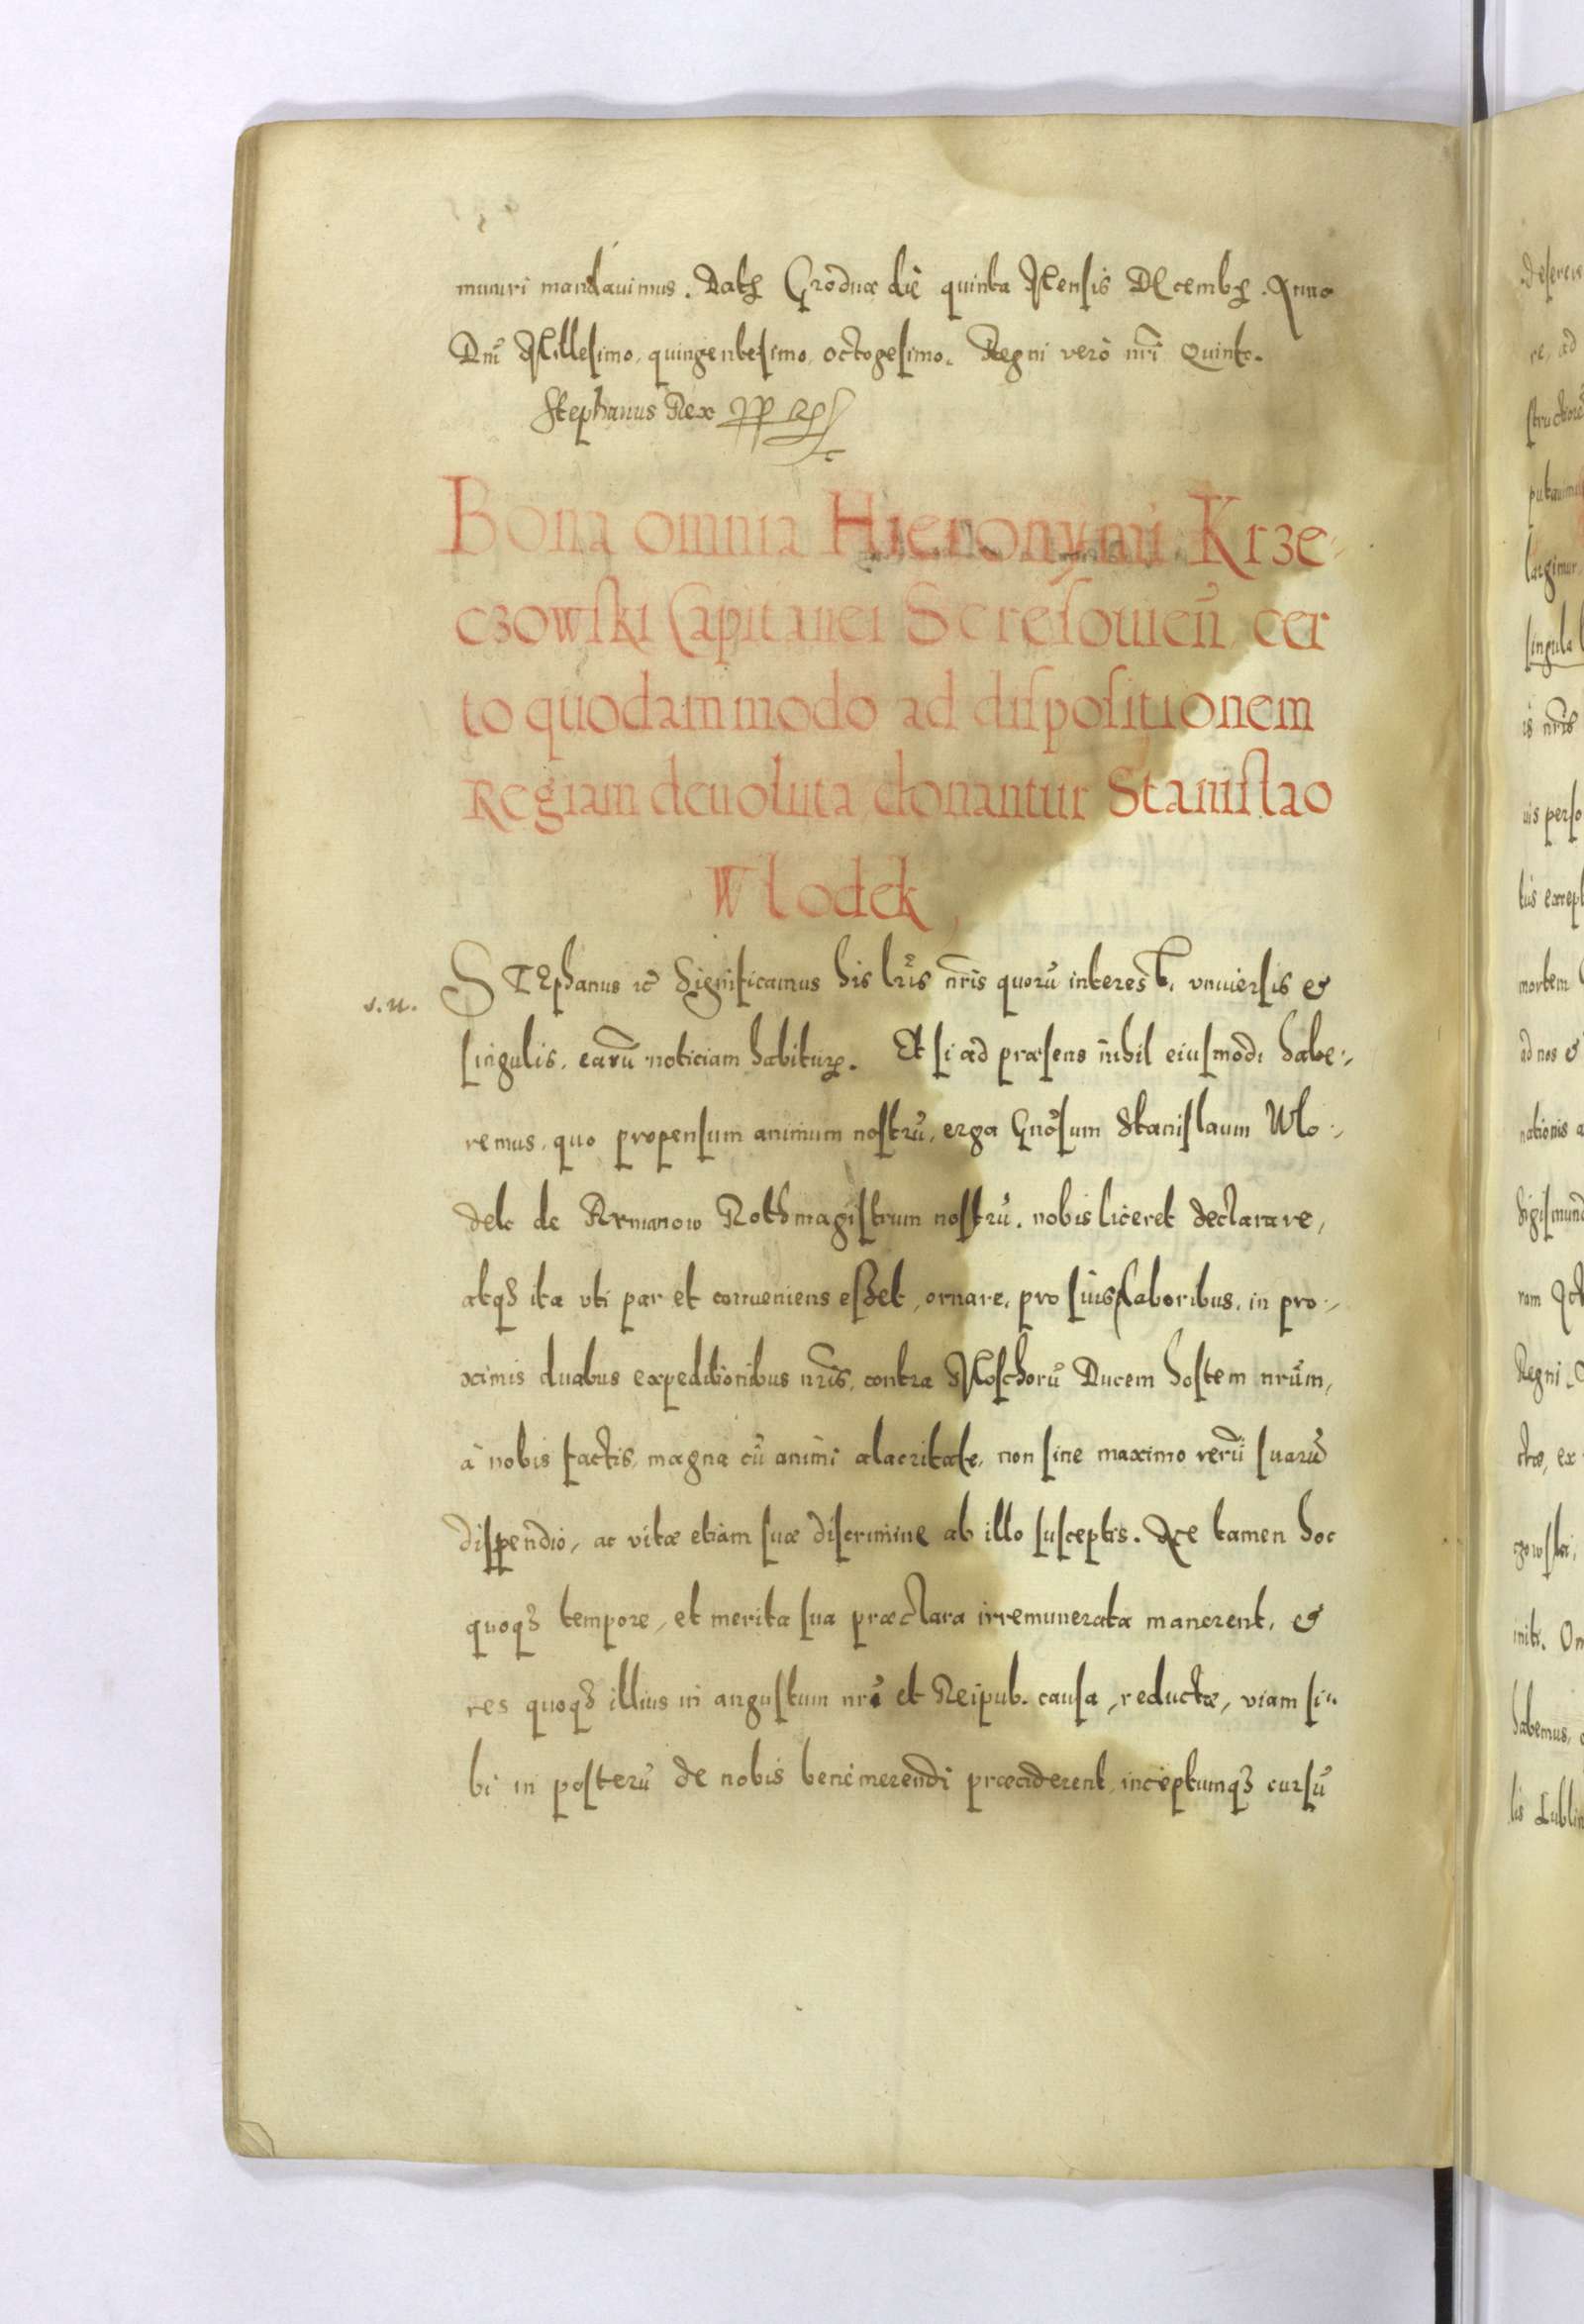 muniri mandauimus. Datꝫ Grodnæ die quinta Mensis Decembꝫ. Anno
Dnĩ Millesimo, quingentesimo, octogesimo. Regni verò nrĩ Quinto.
Stephanus Rex
Bona omnia Hieronymi Krze-
czowſki Capitanei Sereſouien̄, cer
to quodammodo ad diſpoſitionem
Regiam deuoluta, donantur Staniſlao
Wlodek,
s.n.
STEphanus ꝛc̃ Significamus his lrĩs nrĩs quorũ interest, vniuerſis &
ſingulis, earũ noticiam habiturꝭ. Et ſi ad præſens nihil eiuſmodi habe-
remus, quo propenſum animum noſtrũ, erga Gnõſum Staniſlaum Wlo-
dek de Armanow Rothmagiſtrum noſtrũ, nobis liceret declarare,
atqꝫ ita vti par et conueniens eſſet, ornare, pro ſuis laboribus, in pro-
ximis duabus expeditionibus nrĩs, contra Moſchorũ Ducem hoſtem nrũm,
à nobis factis, magna cũ animi alacritate, non ſine maximo rerũ ſuarũ
diſpendio, ac vitæ etiam ſuæ diſcrimine ab illo ſuſceptis. Ne tamen hoc
quoqꝫ tempore, et merita ſua præclara irremunerata manerent, &
res quoqꝫ illius in anguſtum nrã et Reipub. cauſa, reductæ, viam ſi-
bi in poſterũ de nobis benemerendi præciderent, inceptumqꝫ curſũ